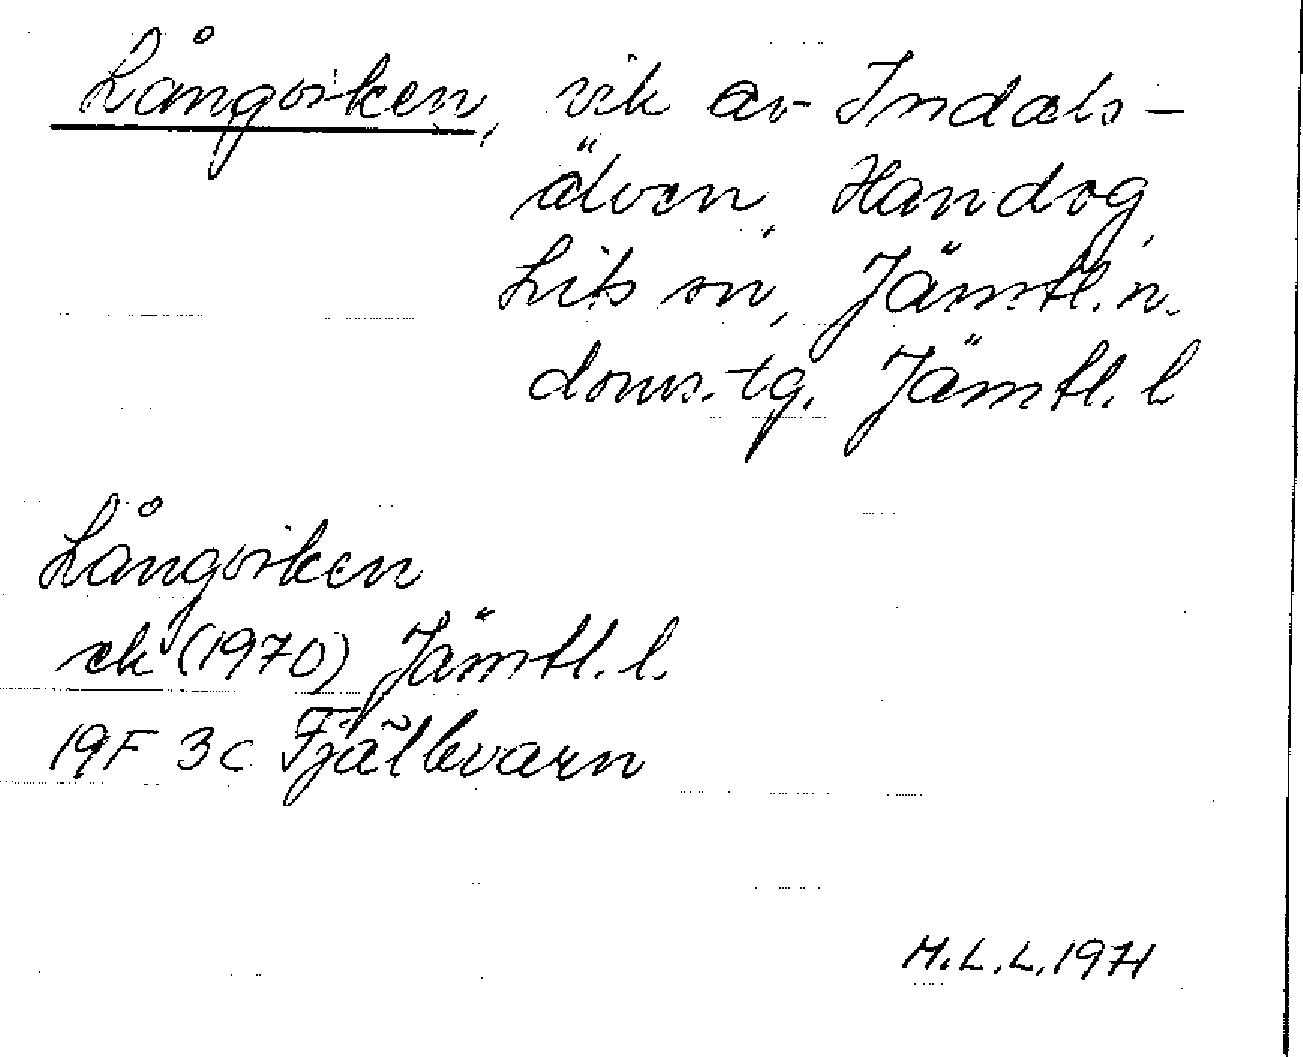 Långviken, vik av Indals-
älven, Handog,
Lits sn, Jämtl. n.
doms.tg. Jämtl. l
Långviken
ek (1970) Jämtl. l.
19F 3c Fjälkvarn
M.L.L. 1971